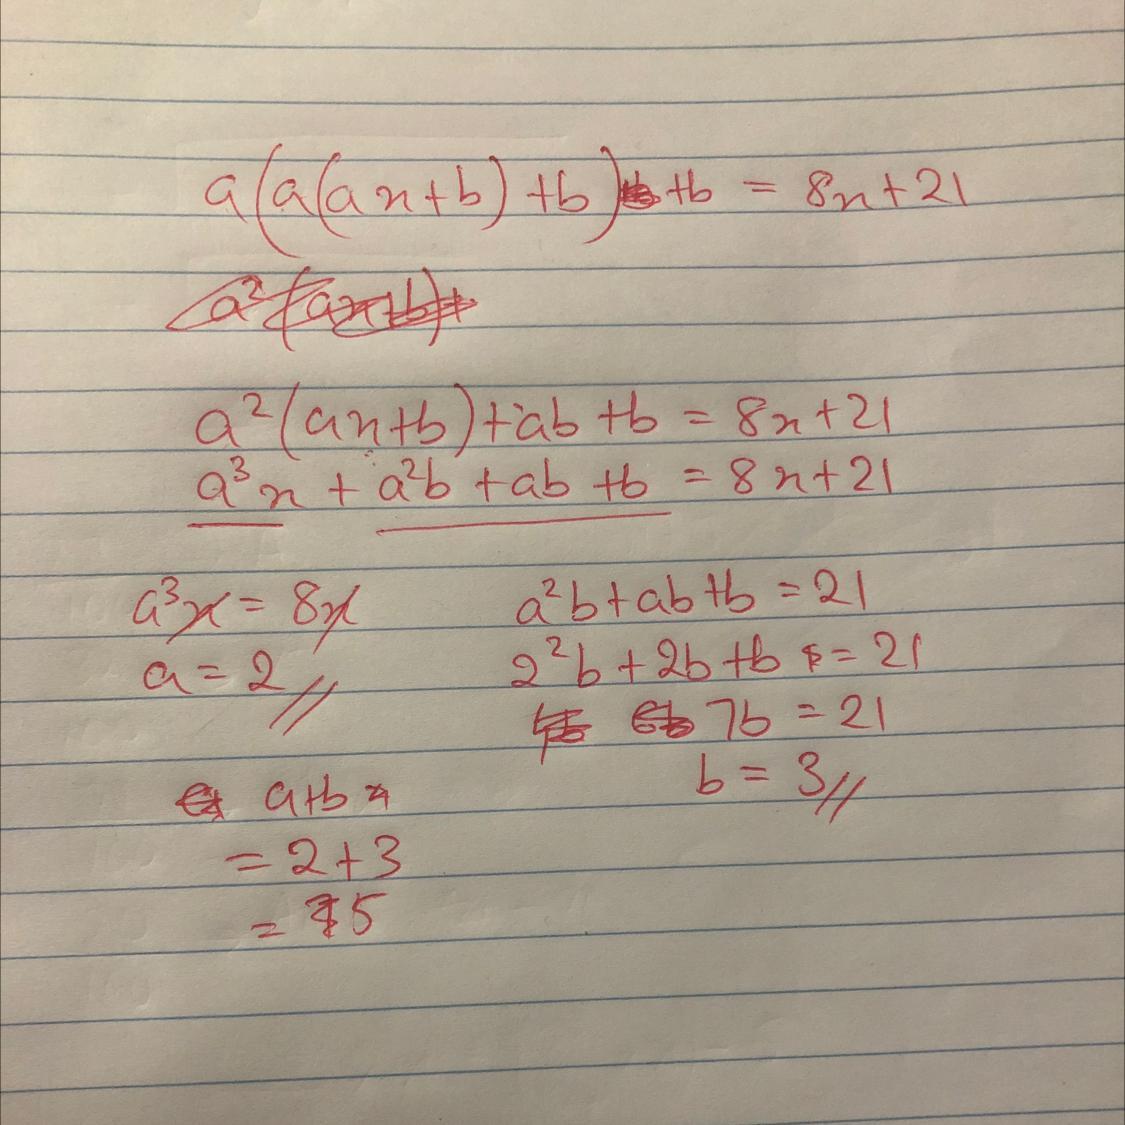 a(a(ax+b)+b)+b = 8x+21
a²(ax+b)+
a²(ax+b)+ab+b = 8x+21
a³x + a²b + ab + b = 8x+21
a³x = 8x
a = 2 //
a²b+ab+b = 21
2²b + 2b + b = 21
7b = 21
b = 3 //
a+b =
= 2+3
= 5